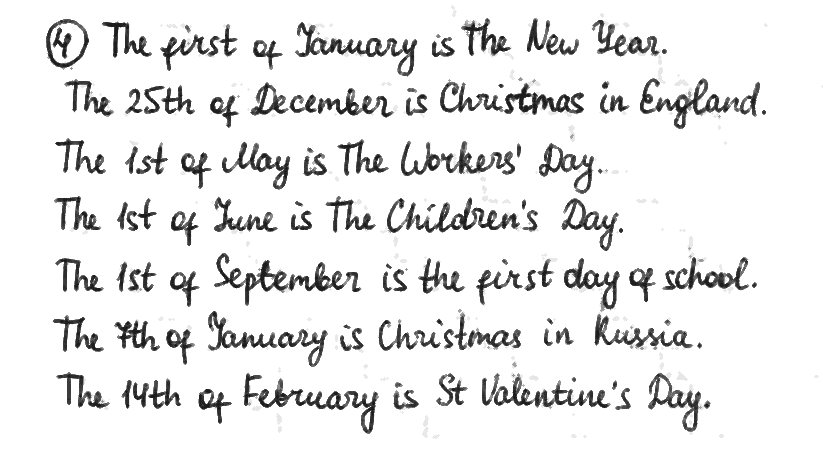 ④ The first of January is The New Year.
The 25th of December is Christmas in England.
The 1st of May is The Workers' Day.
The 1st of June is The Children's Day.
The 1st of September is the first day of school.
The 7th of January is Christmas in Russia.
The 14th of February is St Valentine's Day.